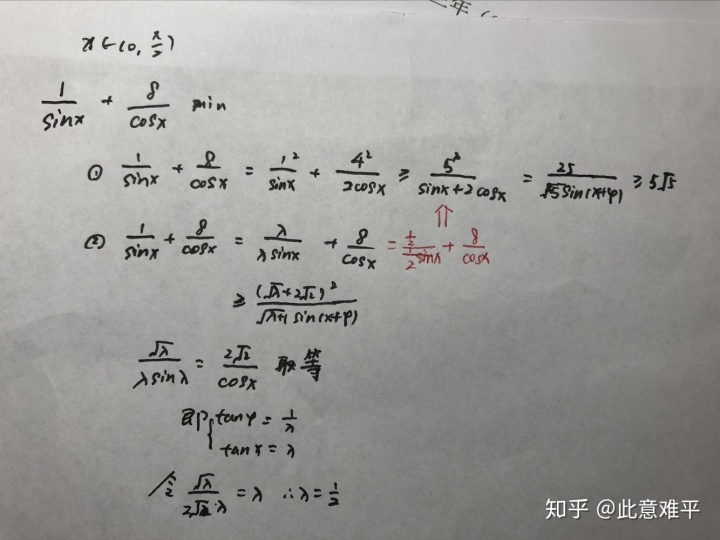 x∈(0, π/2)
1/sinx + 8/cosx min
① 1/sinx + 8/cosx = 1²/sinx + 4²/2cosx ≥ 5²/(sinx+2cosx) = 25/(√5sin(x+φ)) ≥ 5√5
⇑
② 1/sinx + 8/cosx = λ/λsinx + 8/cosx = (1/2)/(1/2 sinx) + 8/cosx
≥ (√λ+2√2)²/(√λ+1 sin(x+φ))
√λ/λsinλ = 2√2/cosx 取等
即{tanφ = 1/λ
tanx = λ
令 √λ/(2√2·λ) = λ ∴λ = 1/2
知乎 @此意难平